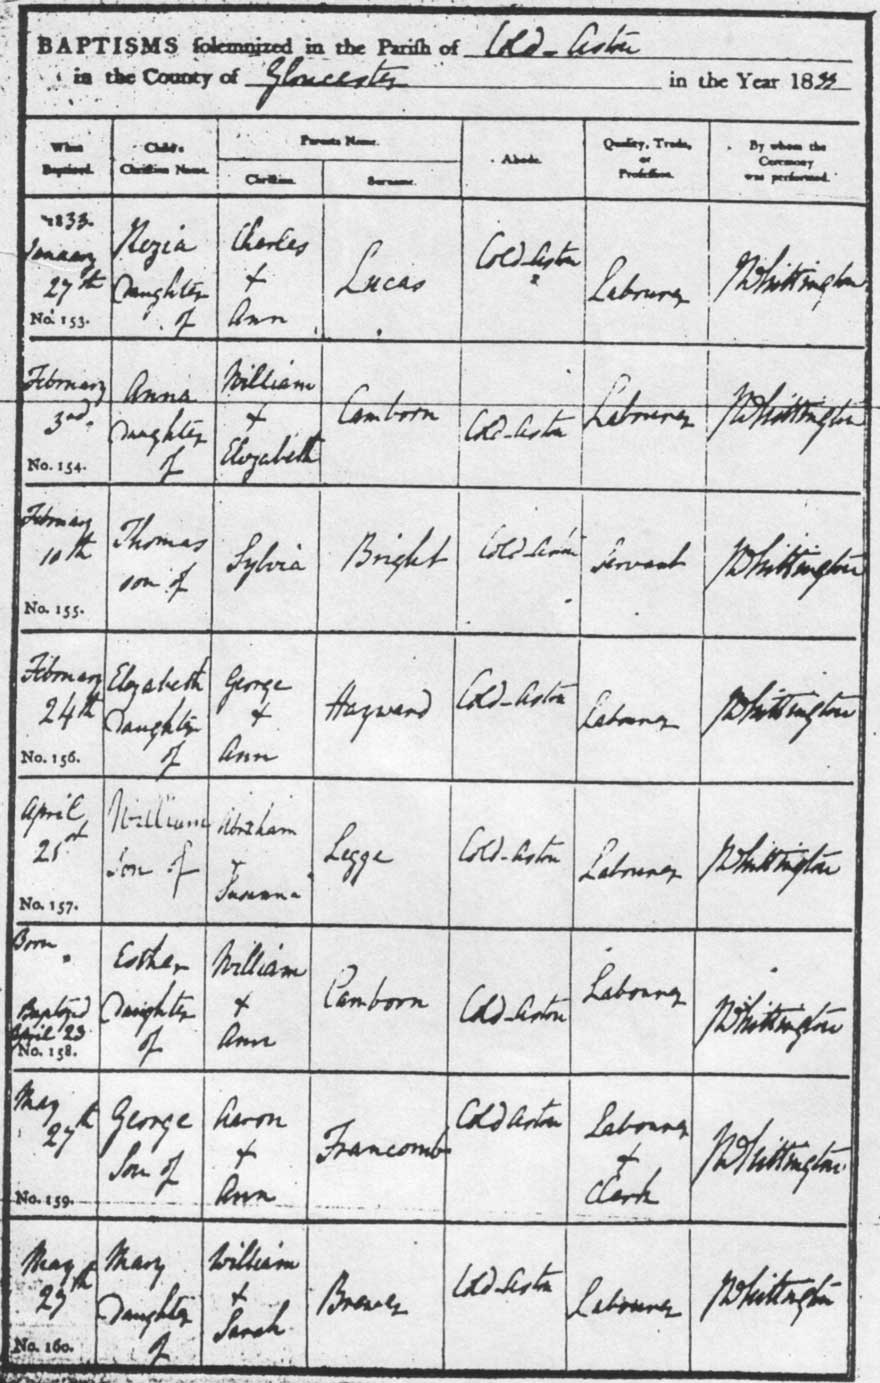 BAPTISMS solemnized in the Parish of Cold-Aston
in the County of Gloucester in the Year 1833
When Baptized.
Child's Christian Name.
Parents Name.
Christian.
Surname.
Abode.
Quality, Trade, or Profession.
By whom the Ceremony was performed.
1833.
January
27th
No. 153.
Kezia
Daughter
of
Charles
+
Ann
Lucas
Cold-Aston
Labourer
Whittington
February
3rd.
No. 154.
Anna
Daughter
of
William
+
Elizabeth
Camborn
Cold-Aston
Labourer
Whittington
February
10th
No. 155.
Thomas
son of
Sylvia
Bright
Cold-Aston
Servant
Whittington
February
24th
No. 156.
Elizabeth
Daughter
of
George
+
Ann
Hayward
Cold-Aston
Labourer
Whittington
April
21st
No. 157.
William
Son of
Abraham
+
Susanna
Legge
Cold-Aston
Labourer
Whittington
Born
Baptized
April 23
No. 158.
Esther
Daughter
of
William
+
Ann
Camborn
Cold-Aston
Labourer
Whittington
May
27th
No. 159.
George
Son of
Aaron
+
Ann
Francomb
Cold Aston
Labourer
+
Clerk
Whittington
May
27th
No. 160.
Mary
Daughter
of
William
+
Sarah
Brewer
Cold-Aston
Labourer
Whittington